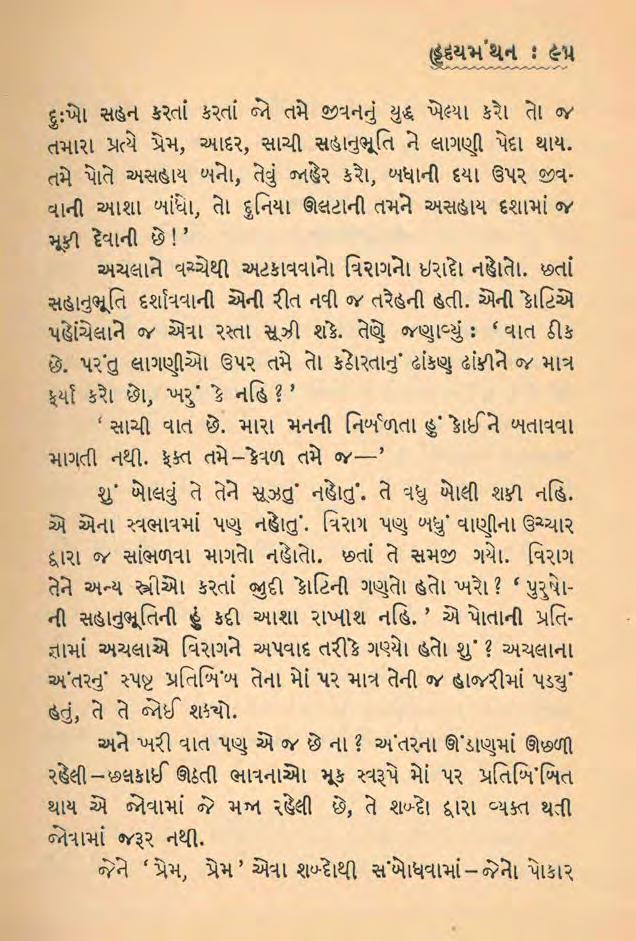 હૃદયમંથન : ૯૫
દુ:ખો સહન કરતાં કરતાં જો તમે જીવનનું યુદ્ધ ખેલ્યા કરો તો જ
તમારા પ્રત્યે પ્રેમ, આદર, સાચી સહાનુભૂતિ ને લાગણી પેદા થાય.
તમે પોતે અસહાય બનો, તેવું જાહેર કરો, બધાની દયા ઉપર જીવ-
વાની આશા બાંધો, તો દુનિયા ઊલટાની તમને અસહાય દશામાં જ
મૂકી દેવાની છે!’
અચલાને વચ્ચેથી અટકાવવાનો વિરાગનો ઇરાદો નહોતો. છતાં
સહાનુભૂતિ દર્શાવવાની એની રીત નવી જ તરેહની હતી. એની કોટિએ
પહોંચેલાને જ એવા રસ્તા સૂઝી શકે. તેણે જણાવ્યું : ‘વાત ઠીક
છે. પરંતુ લાગણીઓ ઉપર તમે તો કઠોરતાનું ઢાંકણ ઢાંકીને જ માત્ર
ફર્યા કરો છો, ખરું કે નહિ ?’
‘સાચી વાત છે. મારા મનની નિર્બળતા હું કોઈને બતાવવા
માગતી નથી. ફક્ત તમે–કેવળ તમે જ—’
શું બોલવું તે તેને સૂઝતું નહોતું. તે વધુ બોલી શકી નહિ.
એ એના સ્વભાવમાં પણ નહોતું. વિરાગ પણ બધું વાણીના ઉચ્ચાર
દ્વારા જ સાંભળવા માગતો નહોતો. છતાં તે સમજી ગયો. વિરાગ
તેને અન્ય સ્ત્રીઓ કરતાં જુદી કોટિની ગણતો હતો ખરો ? ‘પુરુષો-
ની સહાનુભૂતિની હું કદી આશા રાખીશ નહિ.’ એ પોતાની પ્રતિ-
જ્ઞામાં અચલાએ વિરાગને અપવાદ તરીકે ગણ્યો હતો શું ? અચલાના
અંતરનું સ્પષ્ટ પ્રતિબિંબ તેના મોં પર માત્ર તેની જ હાજરીમાં પડ્યું
હતું, તે તે જોઈ શક્યો.
અને ખરી વાત પણ એ જ છે ના ? અંતરના ઊંડાણમાં ઊછળી
રહેલી–છલકાઈ ઊઠતી ભાવનાઓ મૂક સ્વરૂપે મોં પર પ્રતિબિંબિત
થાય એ જોવામાં જે મજા રહેલી છે, તે શબ્દો દ્વારા વ્યક્ત થતી
જોવામાં જરૂર નથી.
જેને ‘પ્રેમ, પ્રેમ’ એવા શબ્દોથી સંબોધવામાં–જેનો પોકાર